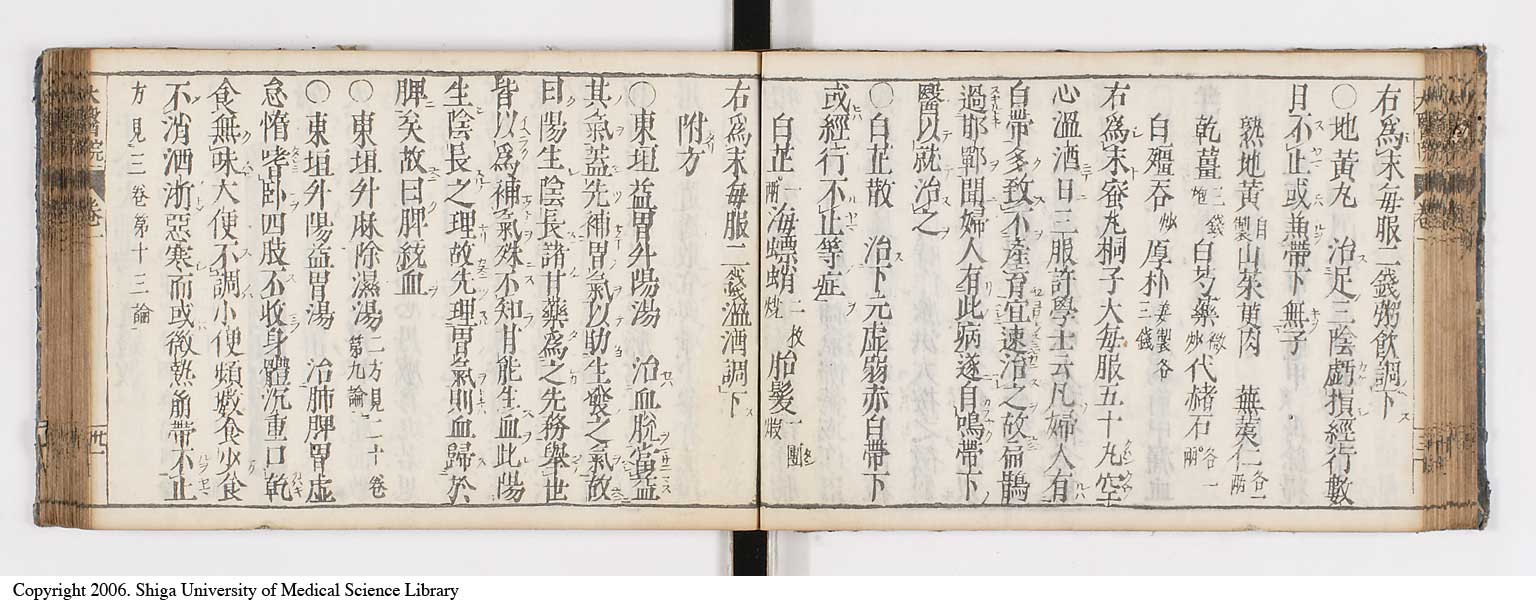 右爲末毎服二錢粥飮調下
○地黄丸　治足三陰虧損經行數
日不止或兼帶下無子
熟地黄　自製　山茱萸肉　蕪荑仁　各一兩
乾薑　炮三錢　白芍藥　微炒　代赭石　各一兩
白殭吞　炒　厚朴　姜製各三錢
右爲末蜜丸桐子大毎服五十丸空
心溫酒日三服許學士云凡婦人有
白帶多致不產育宜速治之故扁鵲
過邯鄲聞婦人有此病遂自鳴帶下
醫以就治之
○白芷散　治下元虛弱赤白帶下
或經行不止等症
白芷　一兩　海螵蛸　二枚燒　胎髮　一團煅
右爲末毎服二錢溫酒調下
附方
○東垣益胃升陽湯　治血脫當益
其氣葢先補胃氣以助生發之氣故
曰陽生陰長諸甘藥爲之先務舉世
皆以爲補氣殊不知甘能生血此陽
生陰長之理故先理胃氣則血歸於
脾矣故曰脾統血
○東垣升麻除濕湯　二方見二十卷第九論
○東垣升陽益胃湯　治肺脾胃虛
怠惰嗜卧四肢不收身體沉重口乾
食無味大便不調小便頻數食少食
不消洒淅惡寒而或微熱崩帶不止
方見三卷第十三論
太醫院
卷一
Copyright 2006. Shiga University of Medical Science Library